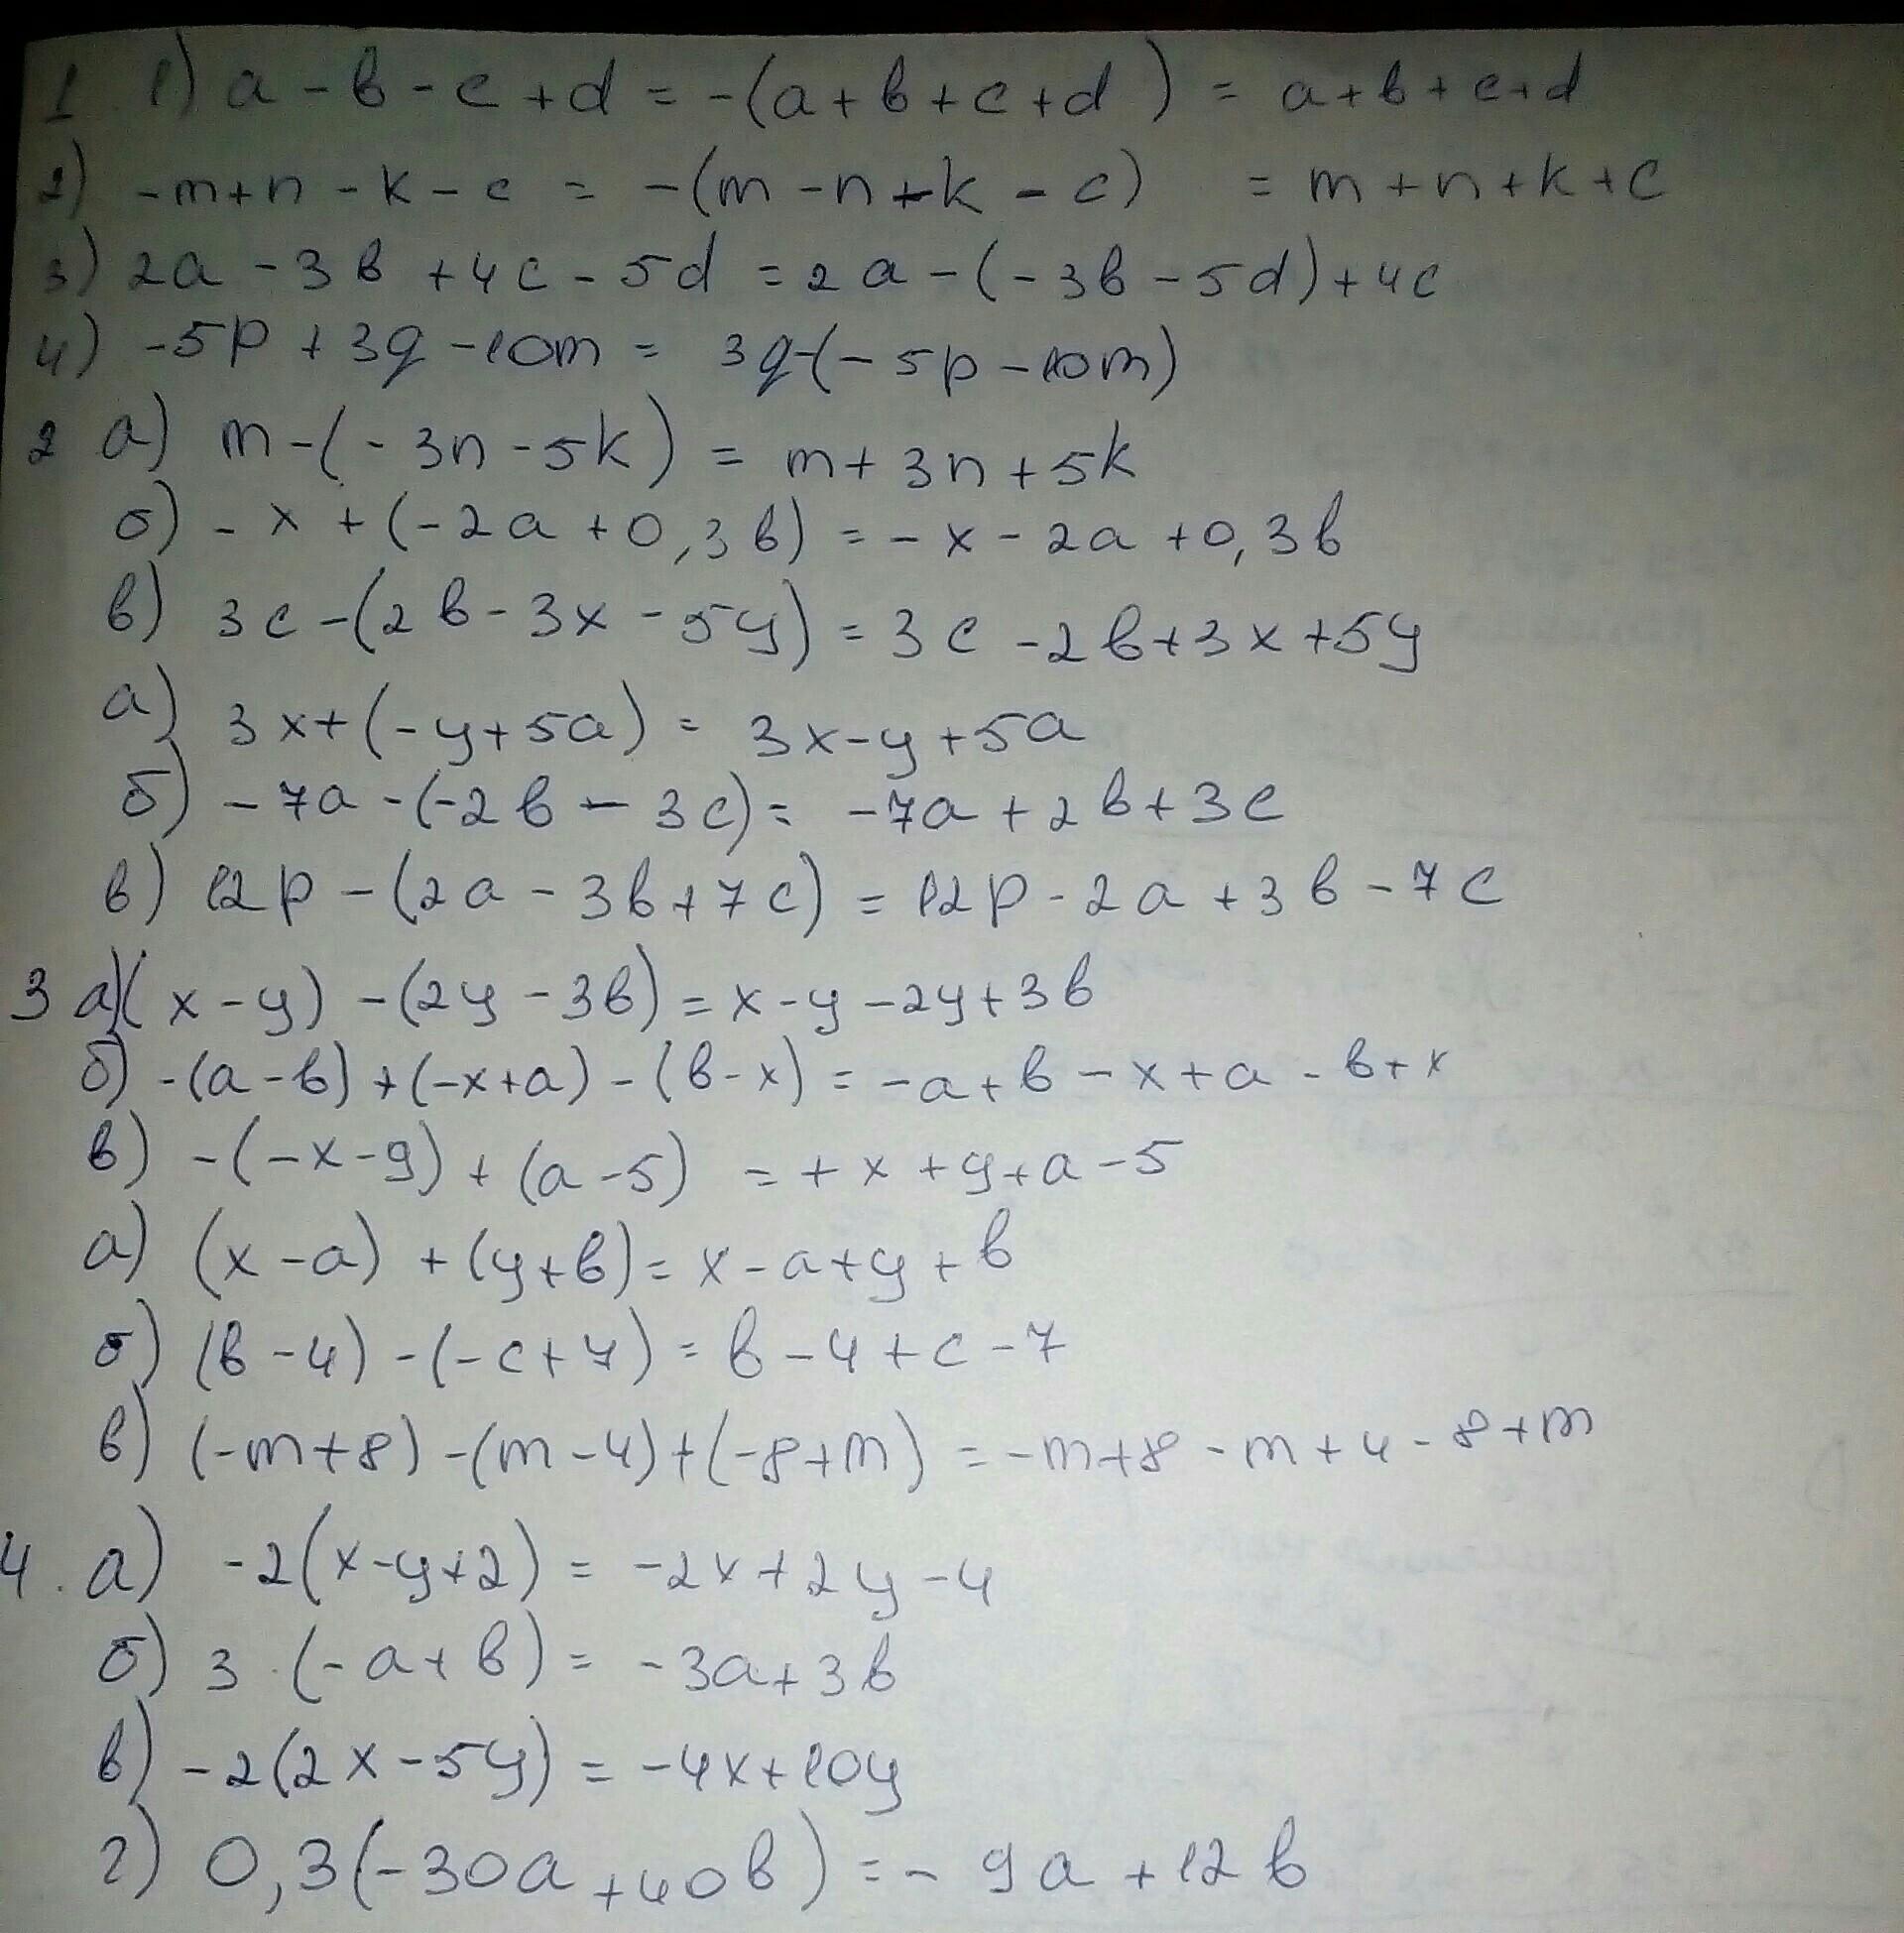 1 1) a - в - c + d = -(a + в + c + d) = a + в + c + d
2) -m + n - k - c = -(m - n + k - c) = m + n + k + c
3) 2a - 3в + 4c - 5d = 2a - (-3в - 5d) + 4c
4) -5p + 3q - 10m = 3q - (-5p - 10m)
2 а) m - (-3n - 5k) = m + 3n + 5k
б) -x + (-2a + 0,3в) = -x - 2a + 0,3в
в) 3c - (2в - 3x - 5y) = 3c - 2в + 3x + 5y
а) 3x + (-y + 5a) = 3x - y + 5a
б) -7a - (-2в - 3c) = -7a + 2в + 3c
в) 12p - (2a - 3в + 7c) = 12p - 2a + 3в - 7c
3 а) (x - y) - (2y - 3в) = x - y - 2y + 3в
б) -(a - в) + (-x + a) - (в - x) = -a + в - x + a - в + x
в) -(-x - y) + (a - 5) = +x + y + a - 5
а) (x - a) + (y + в) = x - a + y + в
б) (в - 4) - (-c + 7) = в - 4 + c - 7
в) (-m + 8) - (m - 4) + (-8 + m) = -m + 8 - m + 4 - 8 + m
4. а) -2(x - y + 2) = -2x + 2y - 4
б) 3 · (-a + в) = -3a + 3в
в) -2(2x - 5y) = -4x + 10y
г) 0,3(-30a + 40в) = -9a + 12в